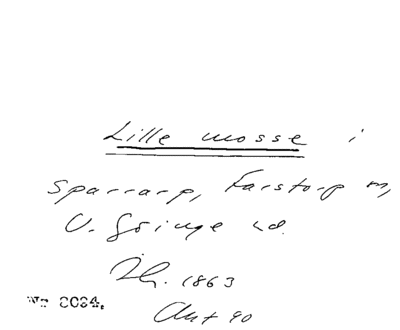 Lille mosse i
Sparrarp, Farstorp m,
V. Göinge hd.
Zh. 1863
Ant 90